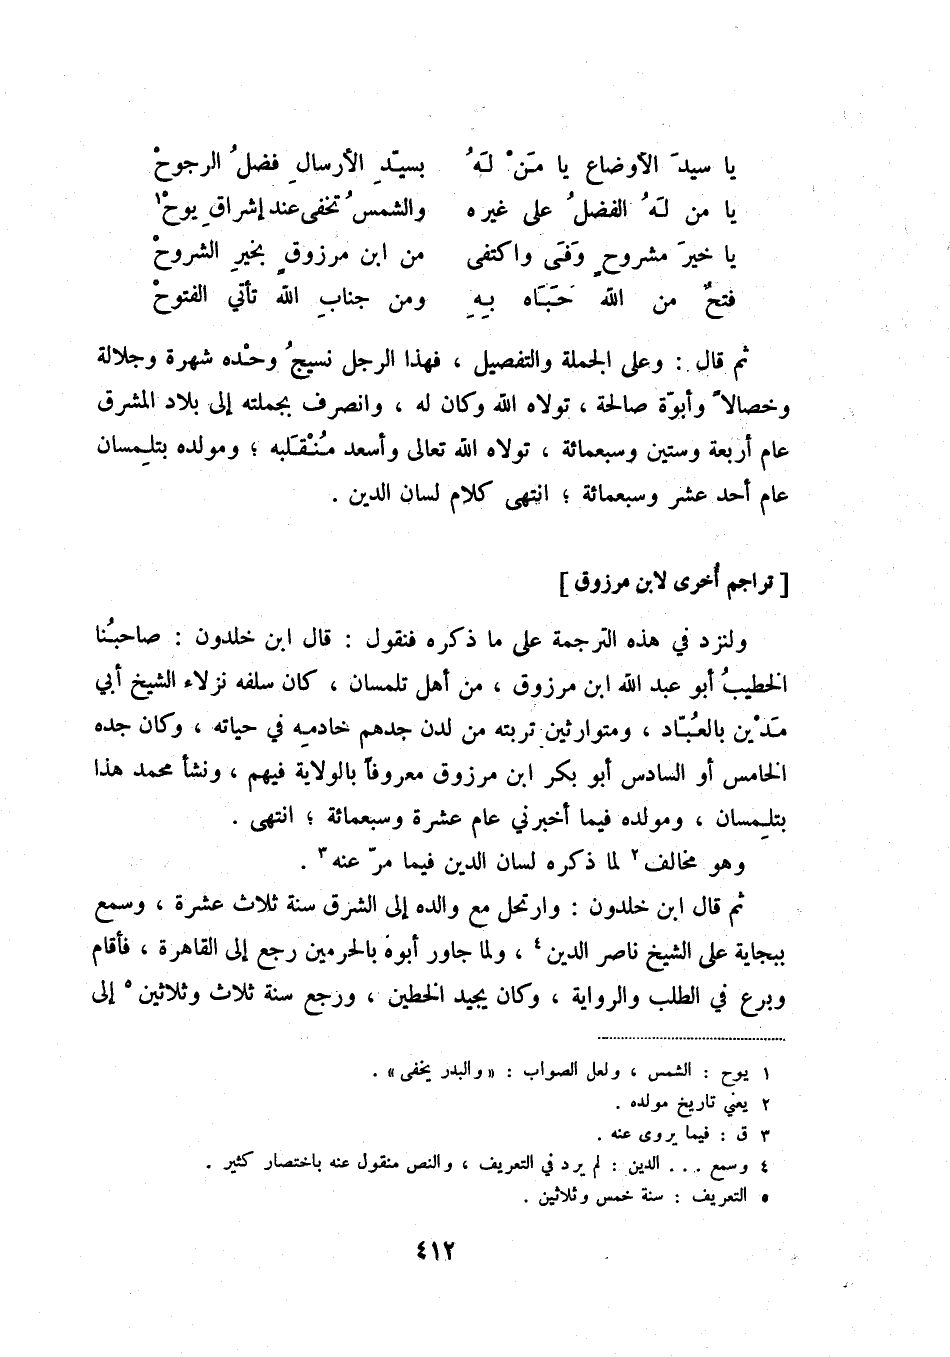 يا سيدَ الأوضاع يا مَنْ لَهُ بسيّدِ الأرسالِ فضلُ الرجوحْ
يا من لَهُ الفضلُ على غيره والشمسُ تخفى عند إشراقِ يوحْ١
يا خيرَ مشروحٍ وَفَى واكتفى من ابن مرزوقٍ بخيرِ الشروحْ
فتحٌ من الله حَبَاه بِهِ ومن جنابِ الله تأتي الفتوحْ
ثم قال : وعلى الجملة والتفصيل ، فهذا الرجل نسيجُ وحْده شهرة وجلالة
وخصالاً وأبوّة صالحة ، تولاه الله وكان له ، وانصرف بجملته إلى بلاد المشرق
عام أربعة وستين وسبعمائة ، تولاه الله تعالى وأسعد مُنْقَلَبه ؛ ومولده بتلِمسان
عام أحد عشر وسبعمائة ؛ انتهى كلام لسان الدين .
[ تراجم أخرى لابن مرزوق ]
ولنزد في هذه الترجمة على ما ذكره فنقول : قال ابن خلدون : صاحبُنا
الخطيبُ أبو عبد الله ابن مرزوق ، من أهل تلمسان ، كان سلفه نزلاء الشيخ أبي
مَدْين بالعُبّاد ، ومتوارثين تربته من لدن جدهم خادمِه في حياته ، وكان جده
الخامس أو السادس أبو بكر ابن مرزوق معروفاً بالولاية فيهم ، ونشأ محمد هذا
بتلِمسان ، ومولده فيما أخبرني عام عشرة وسبعمائة ؛ انتهى .
وهو مخالف٢ لما ذكره لسان الدين فيما مرّ عنه٣ .
ثم قال ابن خلدون : وارتحل مع والده إلى الشرق سنة ثلاث عشرة ، وسمع
ببجاية على الشيخ ناصر الدين٤ ، ولما جاور أبوه بالحرمين رجع إلى القاهرة ، فأقام
وبرع في الطلب والرواية ، وكان يجيد الخطين ، ورجع سنة ثلاث وثلاثين٥ إلى
١ يوح : الشمس ، ولعل الصواب : «والبدر يخفى» .
٢ يعني تاريخ مولده .
٣ ق : فيما يروى عنه .
٤ وسمع ... الدين : لم يرد في التعريف ، والنص منقول عنه باختصار كثير .
٥ التعريف : سنة خمس وثلاثين .
٤١٢